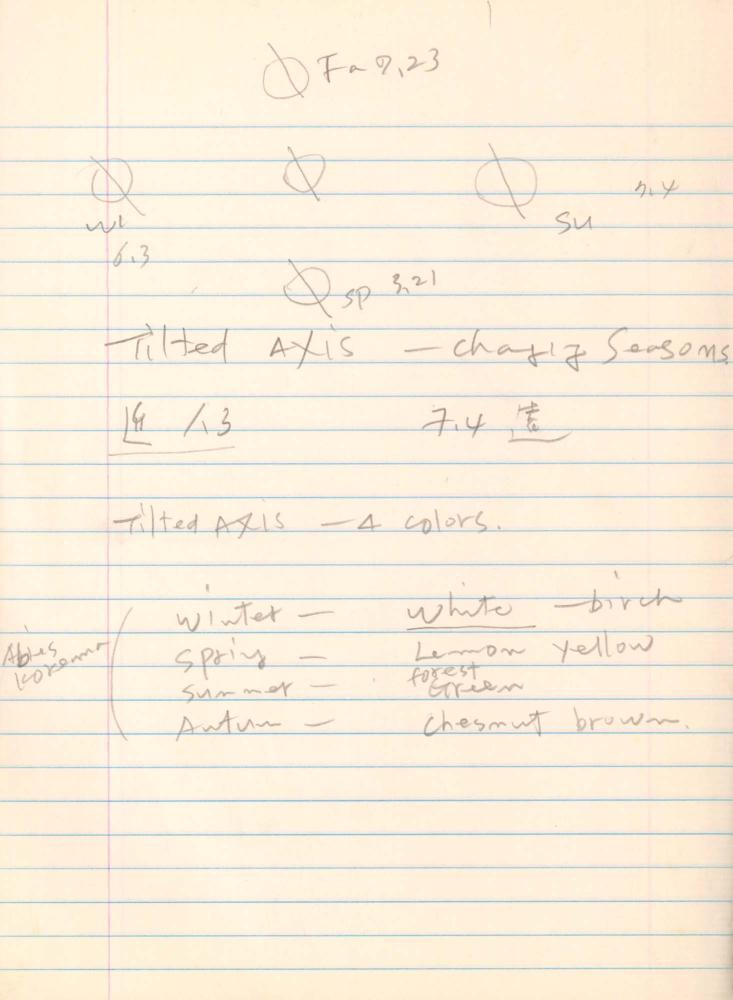 Fa 9,23
7.4
Wi
Su
6.3
Sp 3,21
Tilted Axis — changing Seasons
近 1.3
7.4 遠
Tilted Axis — 4 colors.
Winter — White — birch
Spring — Lemon yellow
Summer — forest Green
Autum — Chesnut brown.
Abies Koreana